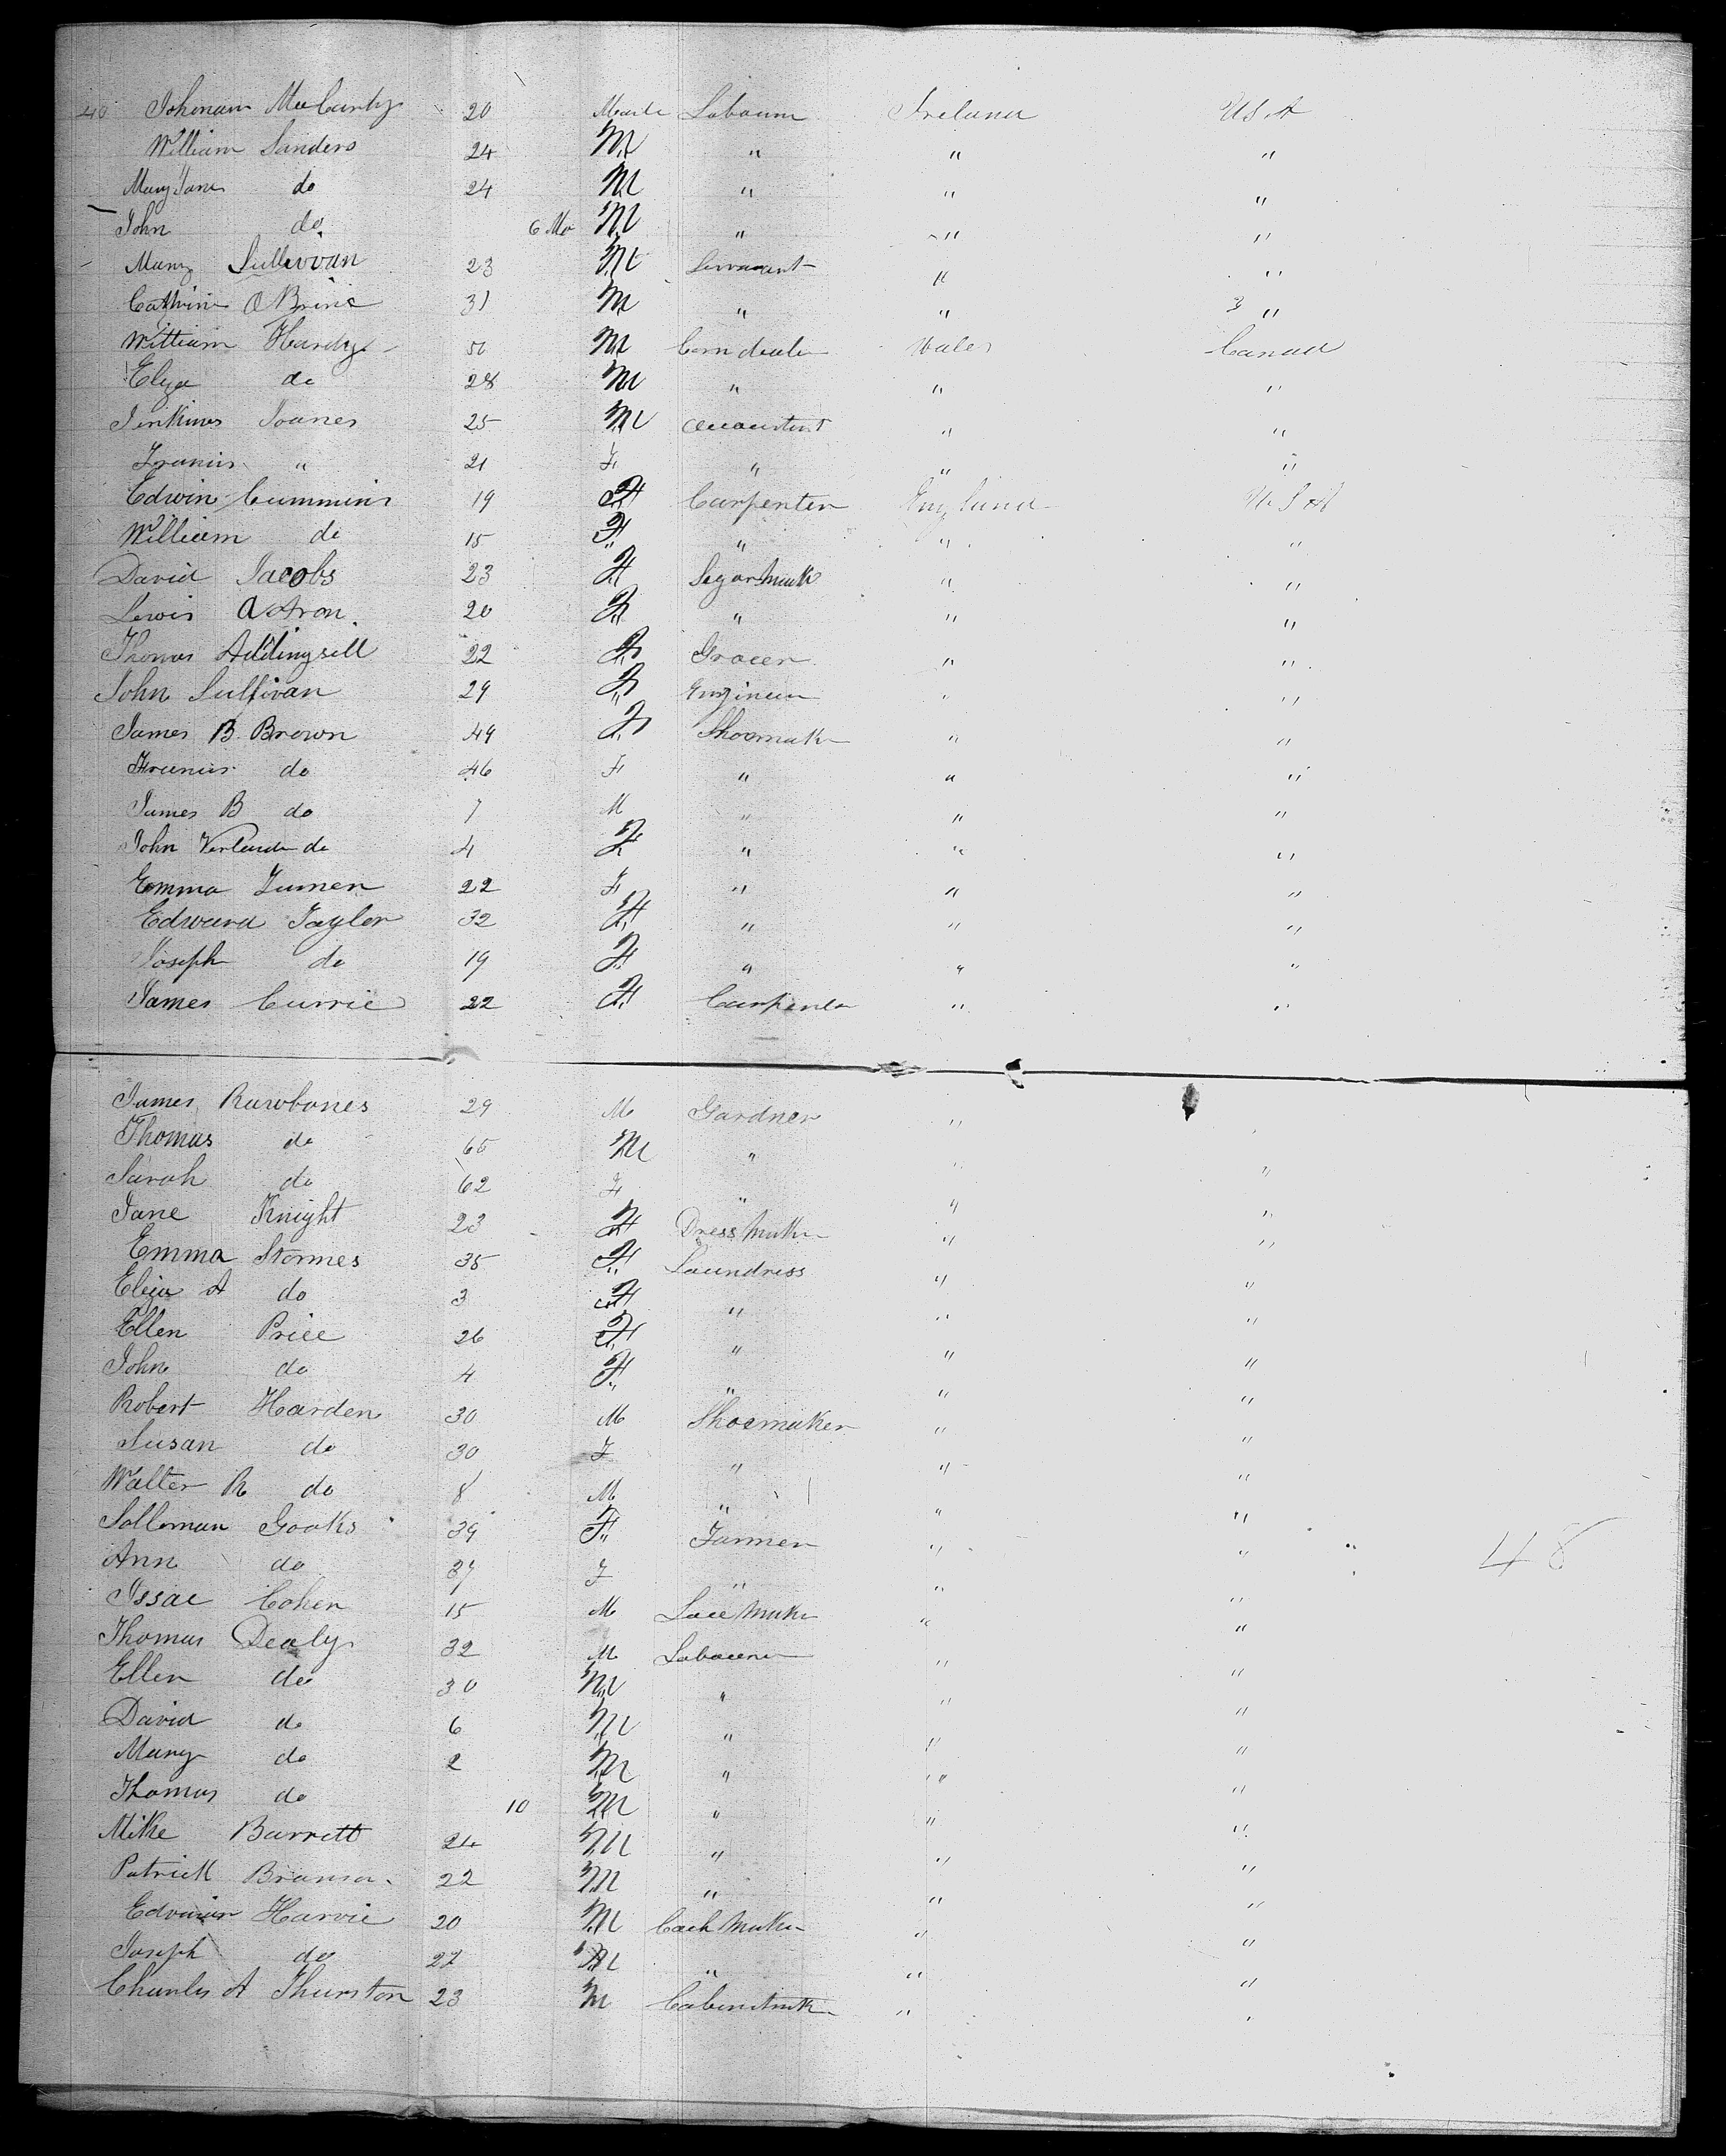 40 Johanan McCarty 20 Male Labourer Ireland USA
William Sanders 24 M " " "
Mary Jane do 24 M " " "
John do 6 Mo M " " "
Mary Sullivan 23 M Servant " "
Cathrine O Brine 31 M " " 3 "
William Hardy 50 M Corn dealer Wales Canad
Eliza do 28 M " " "
Jenkines Joanes 25 M " "
Francis " 21 F " " "
Edwin Cummins 19 F Carpenter England U S A
William do 15 F " " "
David Jacobs 23 F Segar Mak " "
Lewis Aaron 20 F " " "
Thomas Addingsell 22 F Grocer " "
John Sullivan 29 F Engineer " "
James B. Brown 49 F Shoemaker " "
Francis do 46 F " " "
James B do 7 M " " "
John do 4 F " " "
Emma Turner 22 F " " "
Edward Taylor 32 F " " "
Joseph do 19 F " " "
James Currie 22 F Carpenter " "
James Rawbones 29 M Gardner "
Thomas do 65 M " " "
Sarah do 62 F " " "
Jane Knight 23 F Dress Maker " "
Emma Stormes 35 F Laundress " "
Eliza A do 3 F " " "
Ellen Price 26 F " " "
John do 4 F " " "
Robert Harden 30 M Shoemaker " "
Susan do 30 F " " "
Walter R do 8 M " " "
Solloman Gooks 39 F Farmer " "
Ann do 37 F " " " 48
Issac Cohen 15 M Lace Maker " "
Thomas Dealy 32 M Labourer " "
Ellen do 30 M " " "
David do 6 M " " "
Mary do 2 M " " "
Thomas do 10 M " " "
Mike Barrett 24 M " " "
Patrick 22 M " " "
Edwin Harvie 20 M Coach Maker " "
Joseph do 22 M " " "
Charles A Thurston 23 M Cabinetmaker "